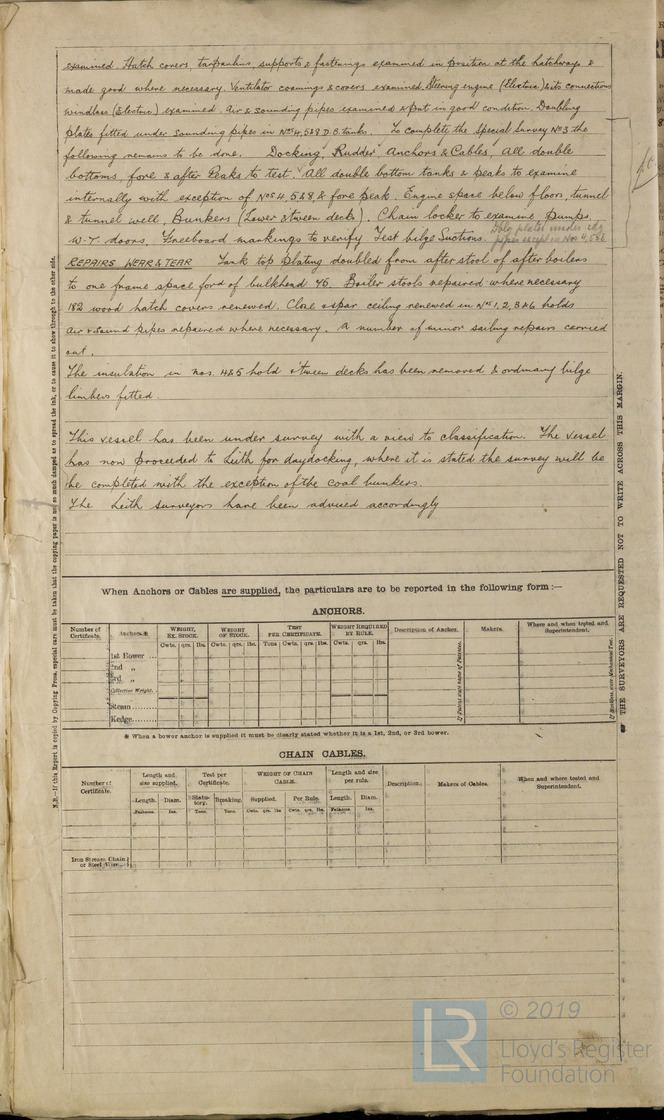 examined. Hatch covers, tarpaulins, supports & fastenings examined in position at the hatchways &
made good where necessary. Ventilator coamings & covers examined. Steering engine (Electric) & its connections
windlass (Electric) examined. Air & sounding pipes examined & put in good condition. Doubling
plates fitted under sounding pipes in Nos 4, 5 & 8 D.B. tanks. To complete the Special Survey No 3 the
following remains to be done. Docking, Rudder, Anchors & Cables, All double
bottoms, fore & after Peaks to test. All double bottom tanks & peaks to examine
internally with exception of Nos 4, 5 & 8, & fore peak. Engine space below floors, tunnel
& tunnel well, Bunkers (Lower & tween decks). Chain locker to examine, pumps,
W.T. doors, Freeboard markings to verify Test bilge Suctions. Dblg plates under sdg
pipes except in Nos 4, 5 & 8
REPAIRS WEAR & TEAR Tank top plating doubled from after stool of after boilers
to one frame space ford of bulkhead 76. Boiler stools repaired where necessary
182 wood hatch covers renewed. Close & spar ceiling renewed in Nos 1, 2, 3 & 6 holds
Air & sound pipes repaired where necessary. A number of minor sailing repairs carried
out.
The insulation in nos. 4 & 5 hold & tween decks has been removed & ordinary bilge
limbers fitted.
This vessel has been under survey with a view to classification. The vessel
has now proceeded to Leith for drydocking, where it is stated the survey will be
be completed with the exception of the coal bunkers.
The Leith surveyors have been advised accordingly
N.B.—If this Report is copied by Copying Press, especial care must be taken that the copying paper is not so much damped as to spread the ink, or to cause it to show through to the other side.
THE SURVEYORS ARE REQUESTED NOT TO WRITE ACROSS THIS MARGIN.
When Anchors or Cables are supplied, the particulars are to be reported in the following form :—
ANCHORS.
Number of Certificate. Anchors.* WEIGHT, EX. STOCK. WEIGHT OF STOCK. TEST PER CERTIFICATE. WEIGHT REQUIRED BY RULE. Description of Anchor. Makers. Where and when tested and Superintendent.
Cwts. qrs. lbs. Cwts. qrs. lbs. Tons Cwts. qrs. lbs. Cwts. qrs. lbs.
1st Bower ...
2nd „
3rd „
Collective Weight.
Stream
Kedge
If Patent state name of Patentee.
If Stockless, state Mechanical Test.
* When a bower anchor is supplied it must be clearly stated whether it is a 1st, 2nd, or 3rd bower.
CHAIN CABLES.
Number of Certificate. Length and size supplied. Test per Certificate. WEIGHT OF CHAIN CABLE. Length and size per rule. Description. Makers of Cables. When and where tested and Superintendent.
Length. Diam. Statutory. Breaking. Supplied. Per Rule. Length. Diam.
Fathoms Ins. Tons. Tons. Cwts. qrs. lbs Cwts. qrs. lbs Fathoms Ins.
Iron Stream Chain
or Steel Wire
© 2019
LR
Lloyd's Register
Foundation